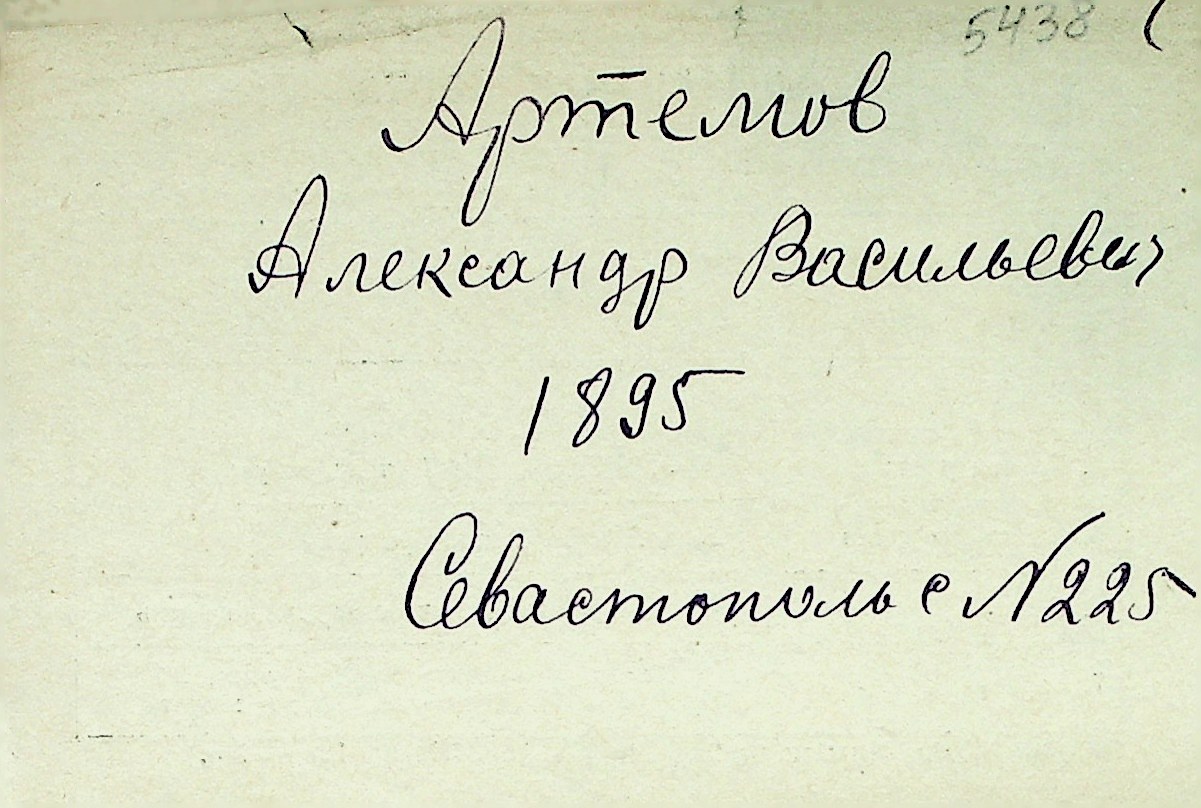 5438
Артемов
Александр Васильевич
1895
Севастополь с N225